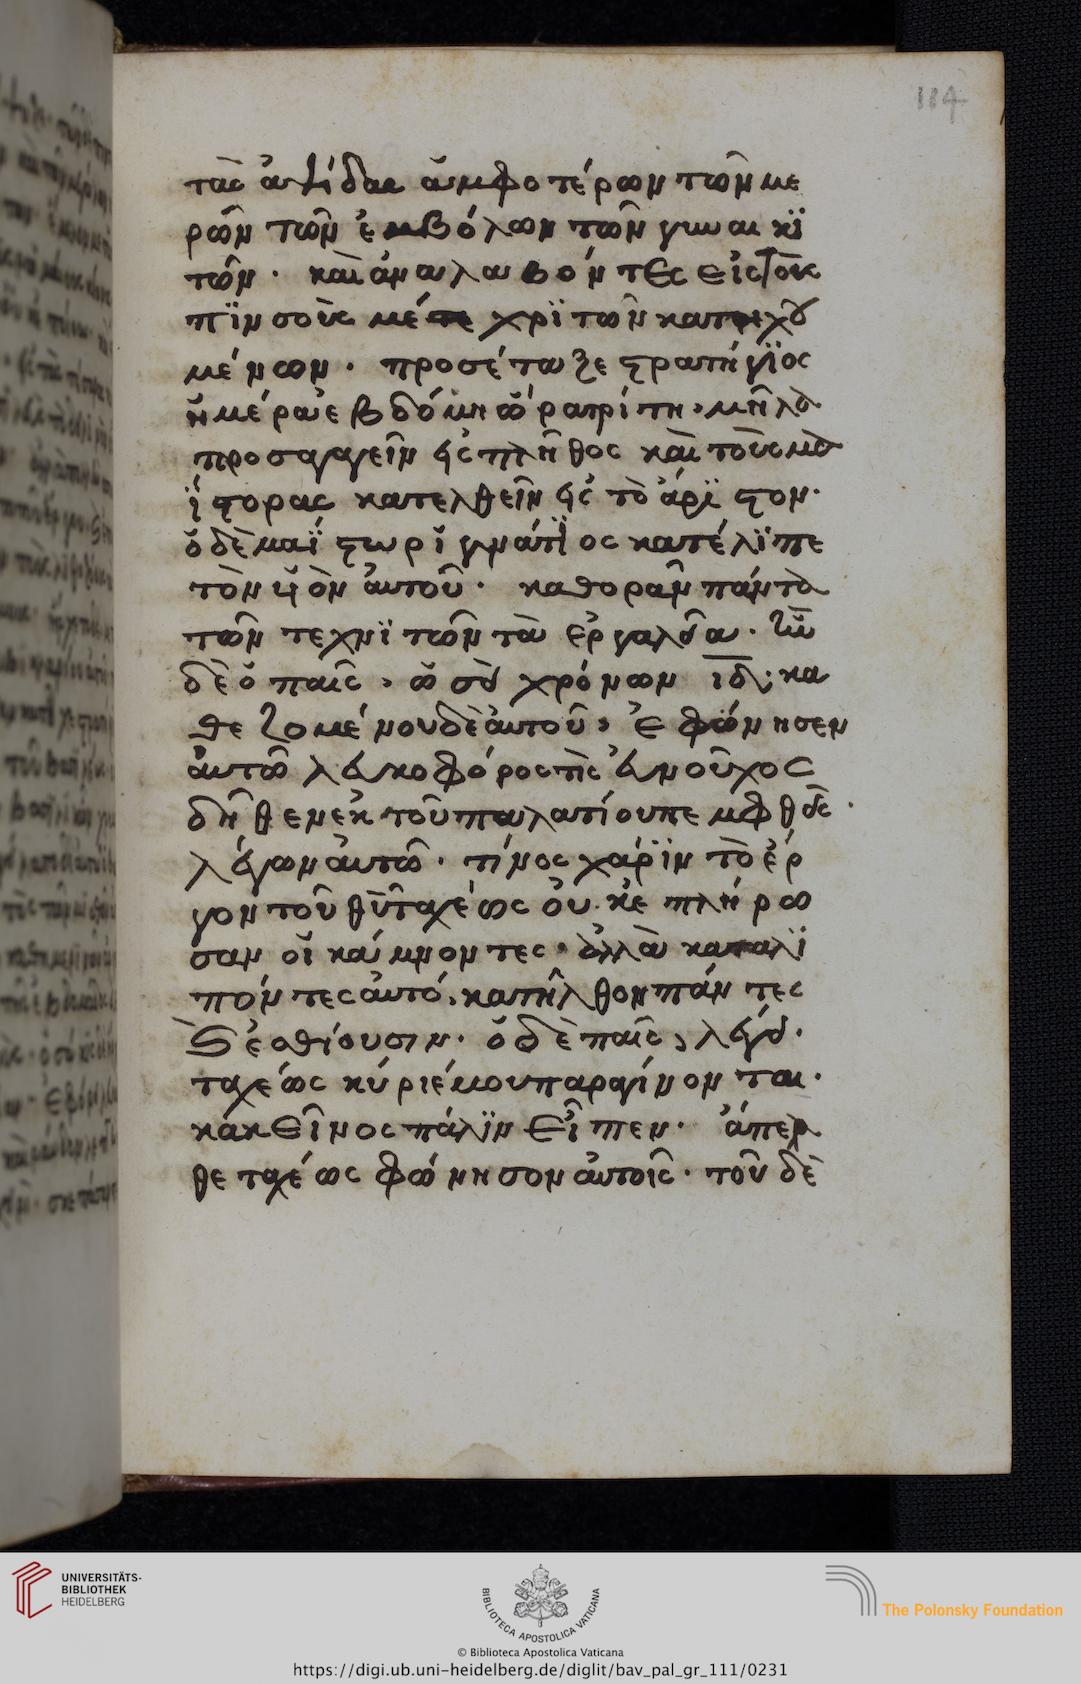 114
τὰς ἁψίδας ἀμφοτέρων τῶν με
ρῶν τῶν ἐμβόλων τῶν γυναικϊ
τῶν. καὶ ἀναλαβόντες εἰς τοὺς
πϊνσοὺς μέχρϊ τῶν κατηχου
μένων. προσέταξε στρατήγϊος
ἡμέρα ἑβδόμη ὥρα τρίτη, μὴ
προσαγαγεῖν εἰς πλῆθος καὶ τοὺς
ΐστορας κατελθεῖν εἰς τὸ ἄρϊστον.
ὁ δὲ μαΐστωρ ἰγνάτϊος κατέλϊπε
τὸν υἱὸν αὐτοῦ. καθορᾶν πάντα
τῶν τεχνϊτῶν τὰ ἐργαλεῖα. ἦν
δὲ ὁ παῖς, ὡσεὶ χρόνων ιδ· κα
θεζομένου δὲ αὐτοῦ, ἐφώνησεν
αὐτῶ λευκοφόρος τὶς εὐνοῦχος
δῆθεν ἐκ τοῦ παλατίου πεμφθεὶς.
λέγων αὐτῶ. τίνος χάρϊν τὸ ἔρ
γον τοῦ θῦ ταχέως οὐκ ἐπλήρω
σαν οἱ κάμνοντες. ἀλλὰ καταλϊ
πόντες αὐτό, κατῆλθον πάντες
καὶ ἐσθίουσιν. ὁ δὲ παῖς, λέγει.
ταχέως κύριέ μου παραγίνονται.
κἀκεῖνος πάλϊν εἶπεν. ἄπελ
θε ταχέως φώνησον αὐτοῖς. τοῦ δὲ
UNIVERSITÄTS-
BIBLIOTHEK
HEIDELBERG
BIBLIOTECA APOSTOLICA VATICANA
© Biblioteca Apostolica Vaticana
The Polonsky Foundation
https://digi.ub.uni-heidelberg.de/diglit/bav_pal_gr_111/0231